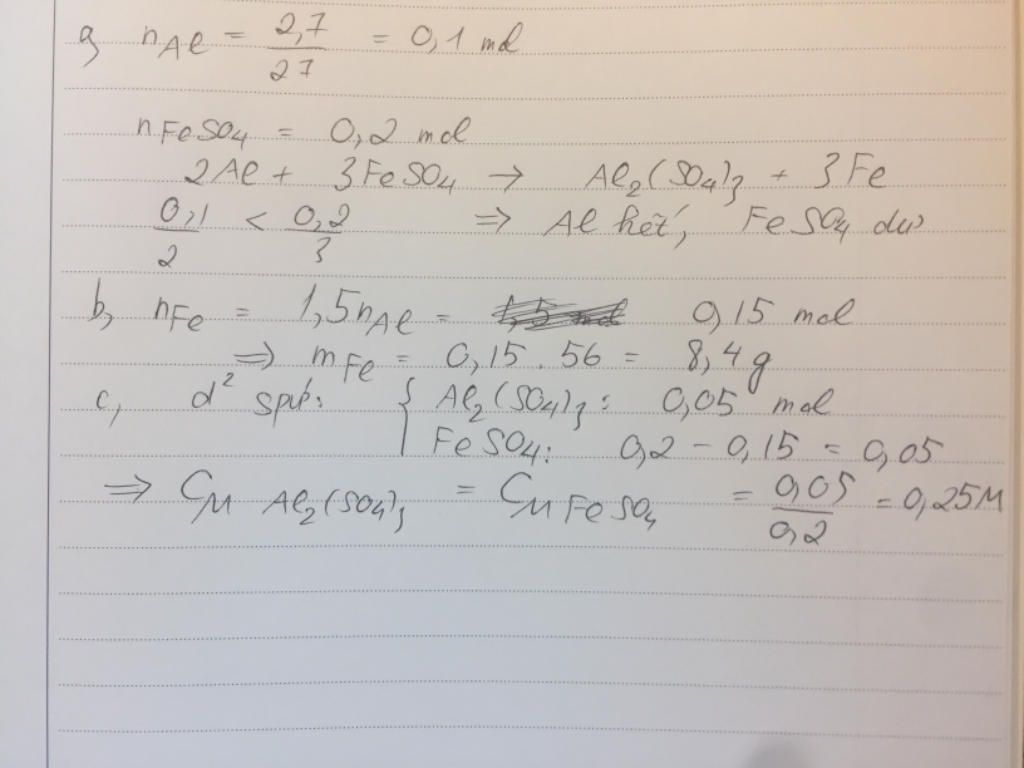 a, nAl = 2,7/27 = 0,1 mol
nFeSO4 = 0,2 mol
2Al + 3FeSO4 → Al2(SO4)3 + 3Fe
0,1/2 < 0,2/3 ⇒ Al hết, FeSO4 dư
b, nFe = 1,5nAl = 0,15 mol
⇒ mFe = 0,15 . 56 = 8,4g
c, d² spứ: { Al2(SO4)3 : 0,05 mol
FeSO4: 0,2 - 0,15 = 0,05
⇒ CM Al2(SO4)3 = CM FeSO4 = 0,05/0,2 = 0,25M